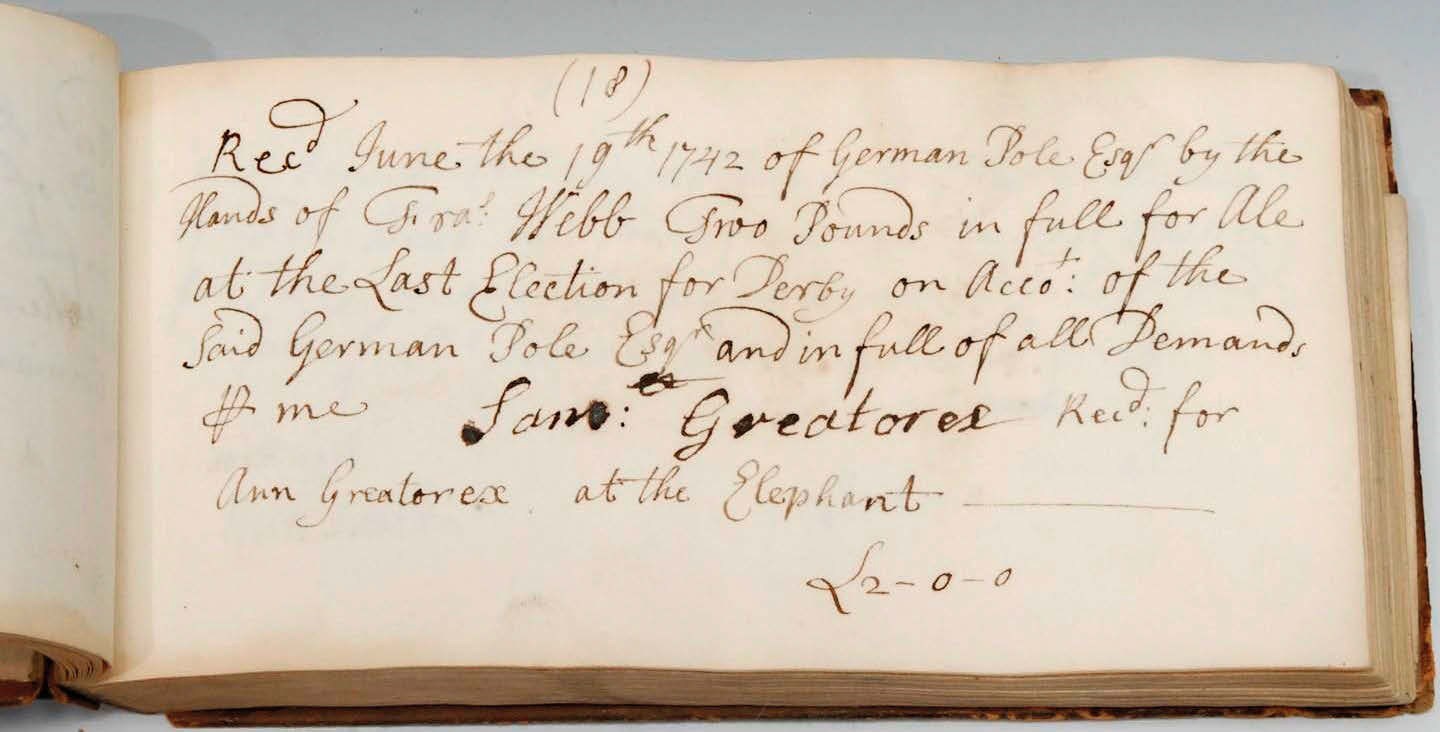 (18)
Recd June the 19th 1742 of German Pole Esqr by the
Hands of Fras: Webb Two Pounds in full for Ale
at the Last Election for Derby on Accot: of the
Said German Pole Esqr and in full of all Demands
⅌ me Sam: Greatorex Recd: for
Ann Greatorex at the Elephant
£2-0-0